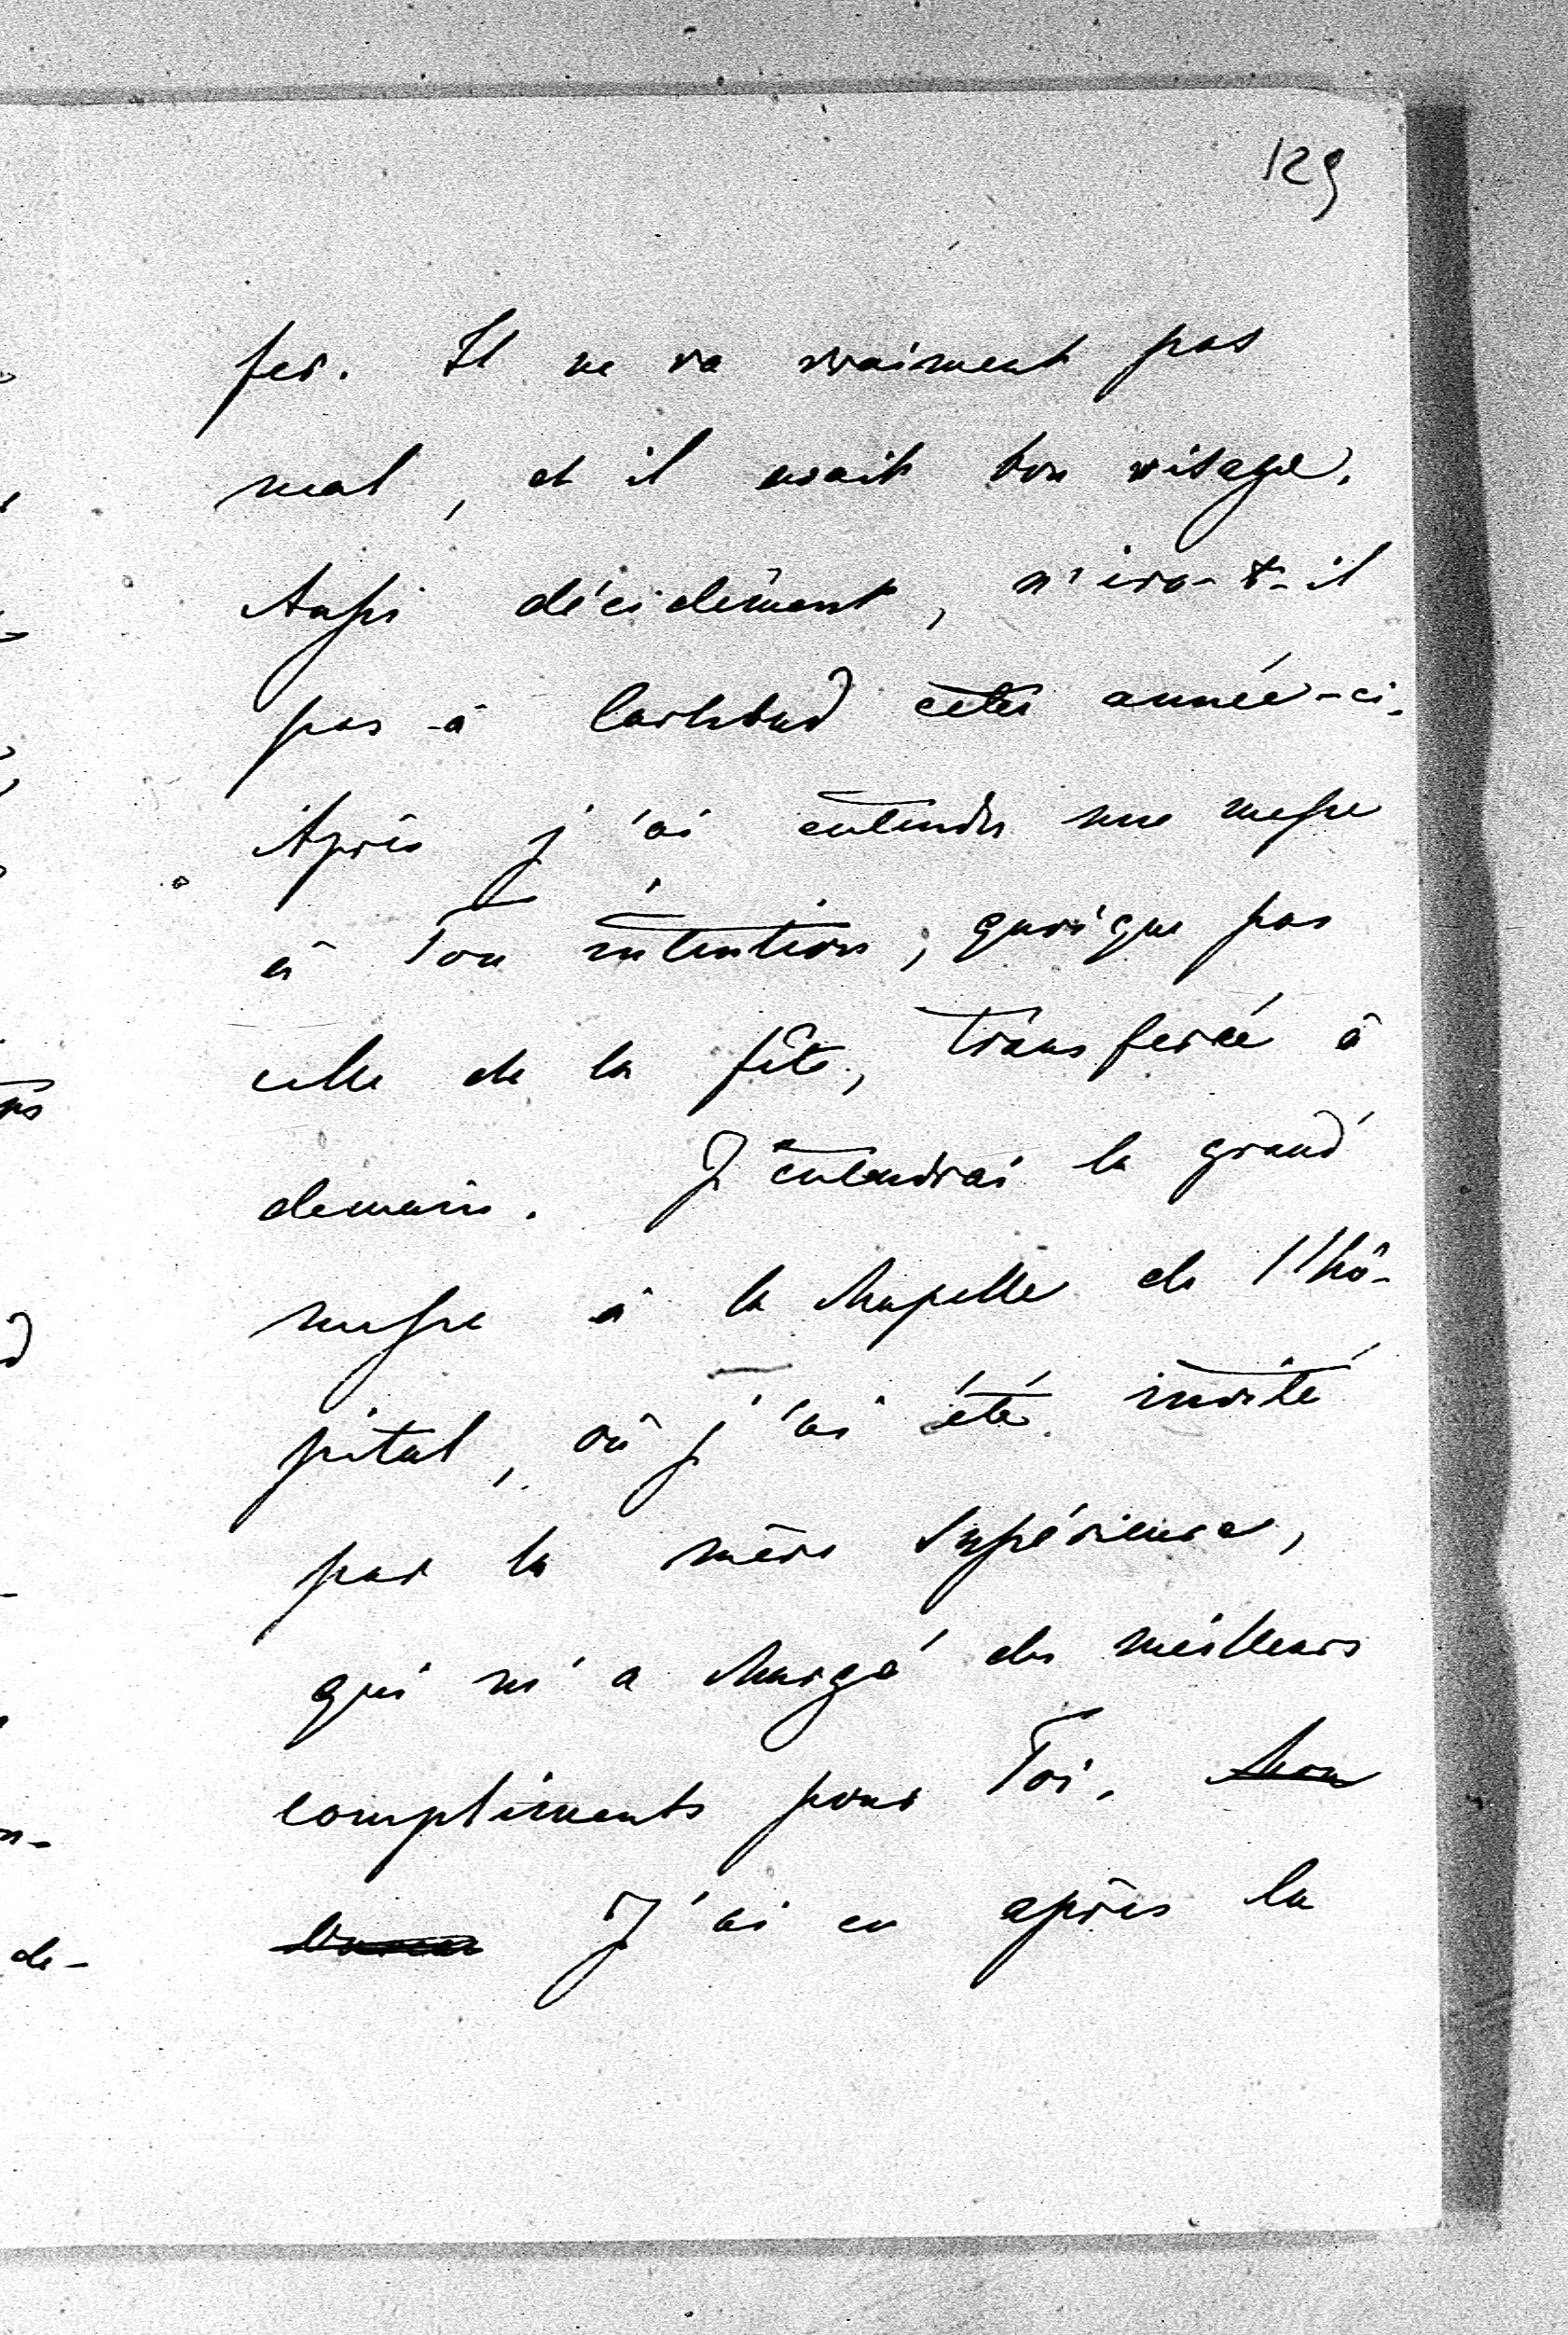 129
fer. Il ne va vraiment pas
mal, et il avait bon visage.
Aussi décidément, n'ira-t-il
pas à Carlsbad cette année-ci.
Après j'ai entendu une messe
à Ton intention, quoique pas
celle de la fête, transferée à
demain. J'entendrai la grand'
messe à la chapelle de l'hô-
pital, où j'ai été invité
par la mère supérieure,
qui m'a chargé des meilleurs
compliments pour Toi. Mon
J'ai eu après la